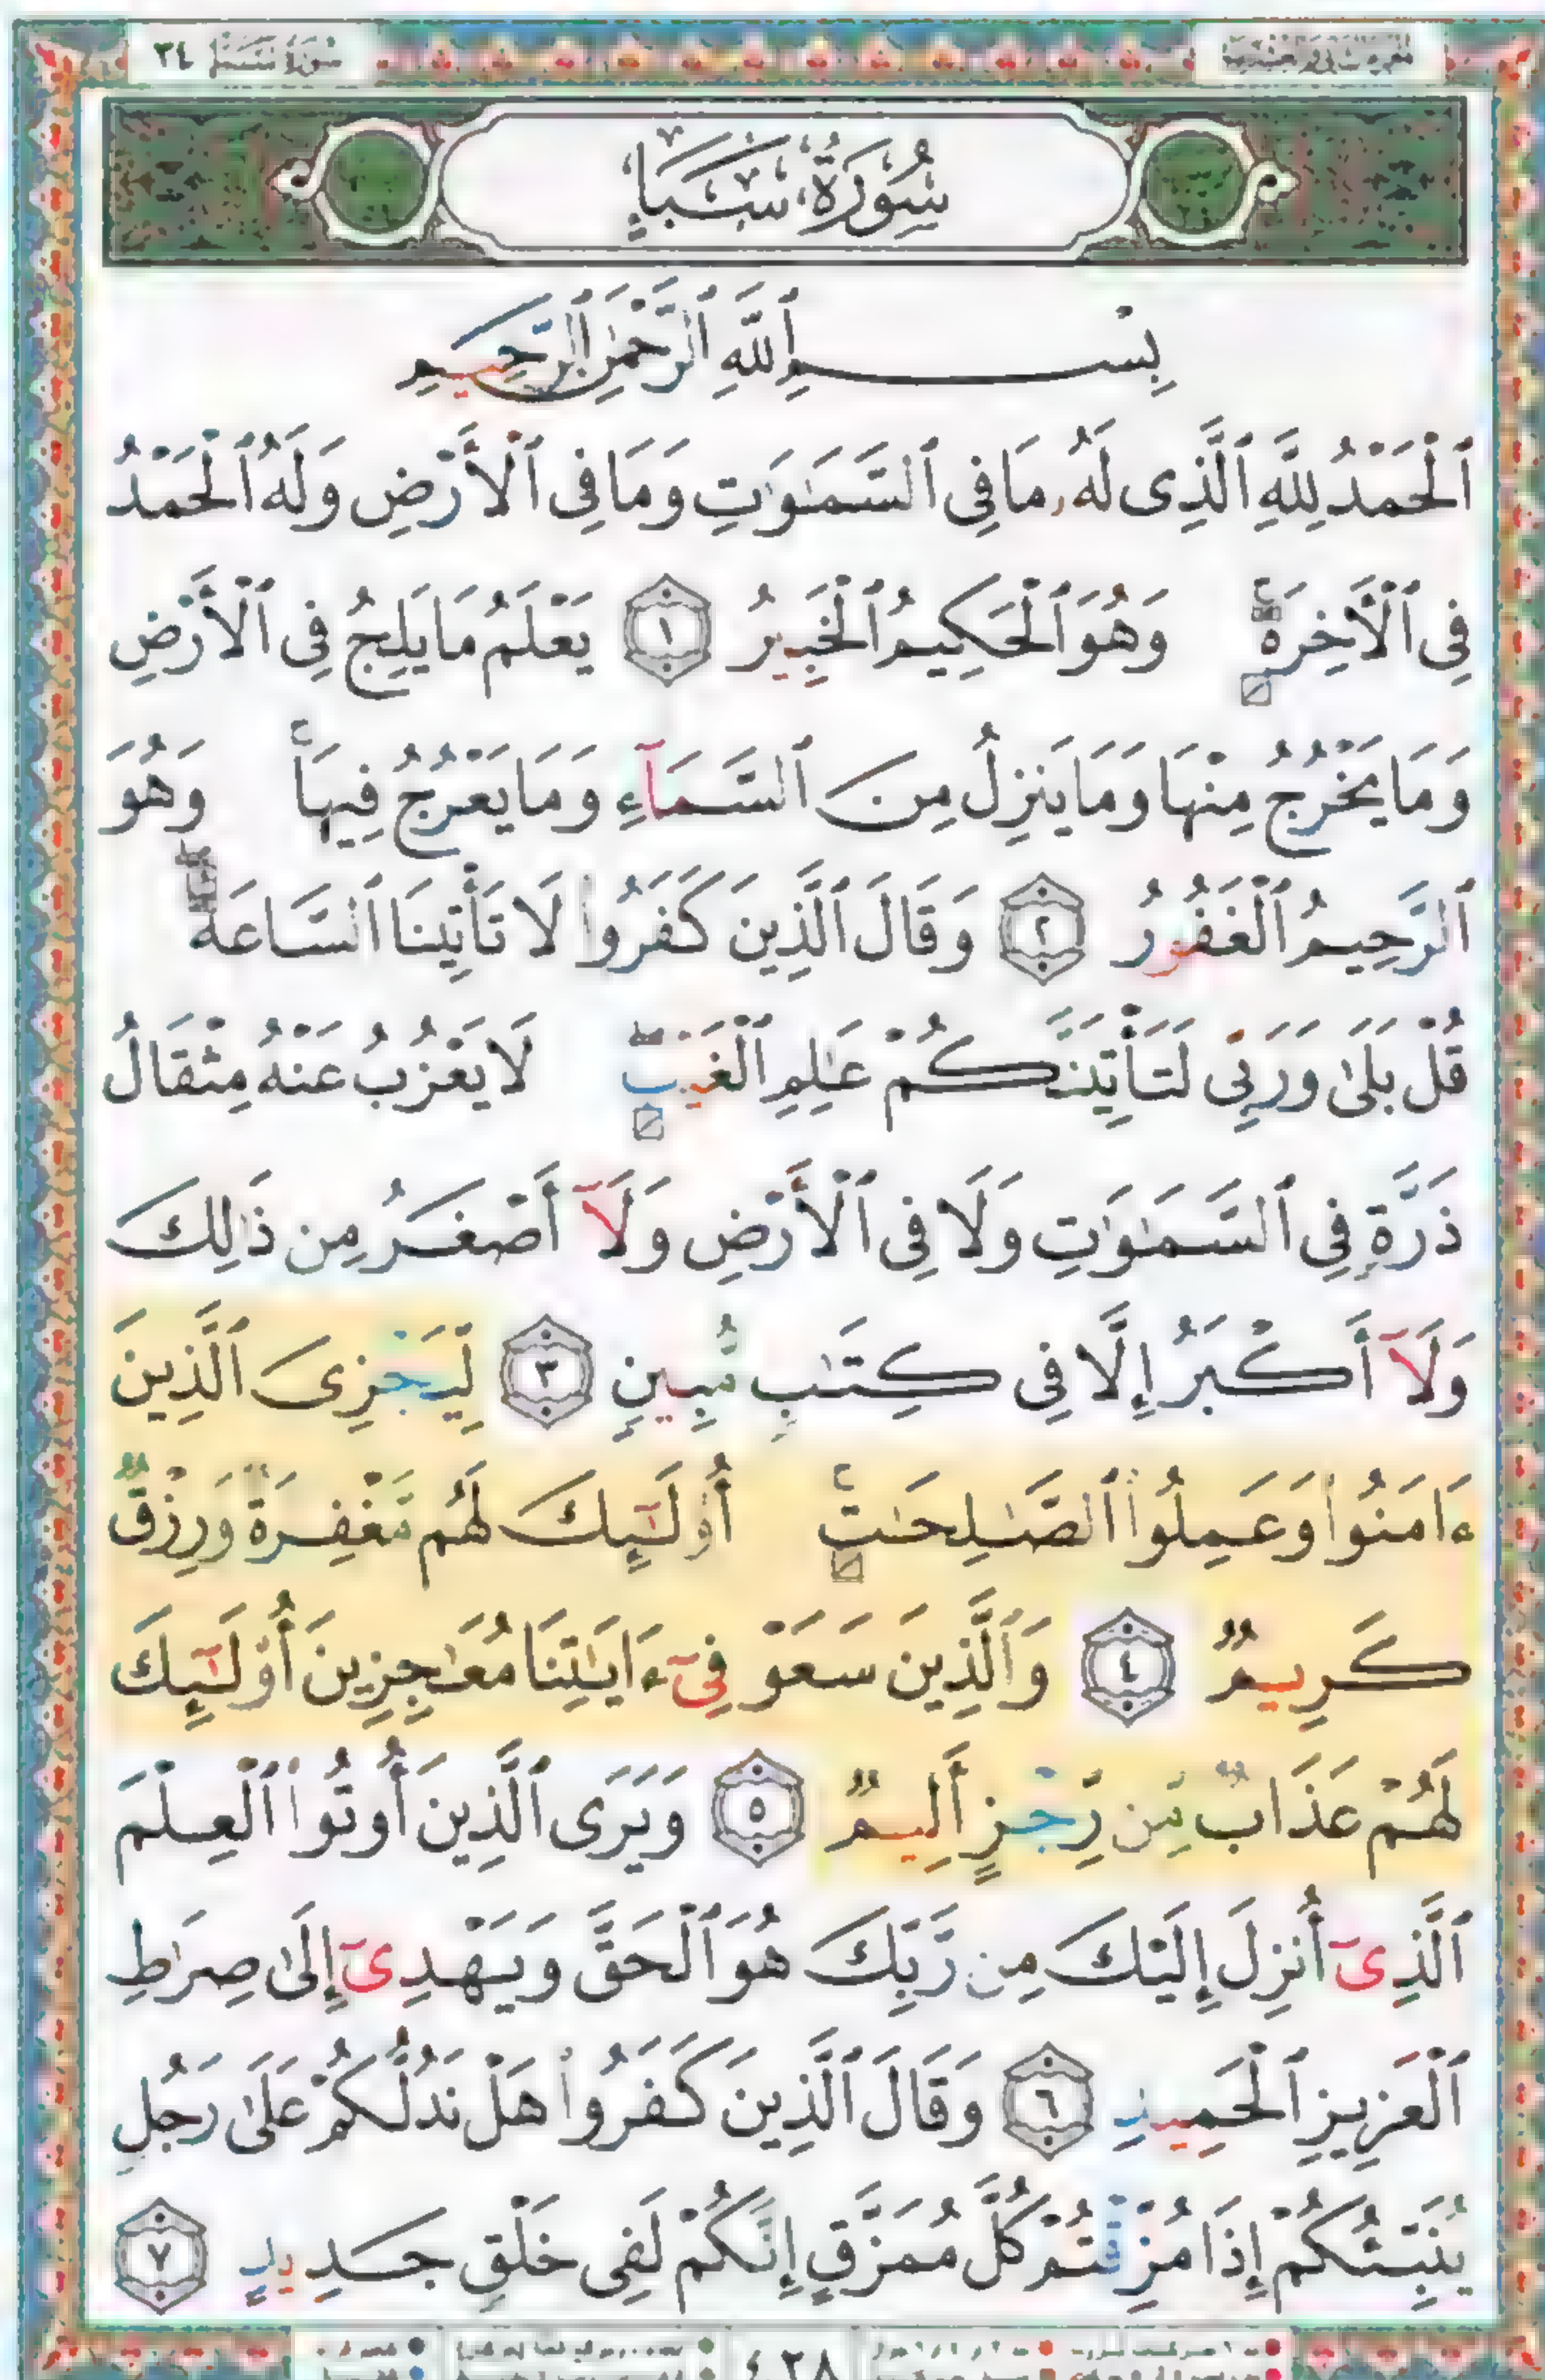 سُورَةُ سَبَإٍ ٣٤
سُورَةُ سَبَإٍ
بِسْمِ ٱللَّهِ ٱلرَّحْمَٰنِ ٱلرَّحِيمِ
ٱلْحَمْدُ لِلَّهِ ٱلَّذِى لَهُۥ مَا فِى ٱلسَّمَٰوَٰتِ وَمَا فِى ٱلْأَرْضِ وَلَهُ ٱلْحَمْدُ
فِى ٱلْأَخِرَةِۚ وَهُوَ ٱلْحَكِيمُ ٱلْخَبِيرُ ١ يَعْلَمُ مَا يَلِجُ فِى ٱلْأَرْضِ
وَمَا يَخْرُجُ مِنْهَا وَمَا يَنزِلُ مِنَ ٱلسَّمَآءِ وَمَا يَعْرُجُ فِيهَاۚ وَهُوَ
ٱلرَّحِيمُ ٱلْغَفُورُ ٢ وَقَالَ ٱلَّذِينَ كَفَرُوا۟ لَا تَأْتِينَا ٱلسَّاعَةُۖ
قُلْ بَلَىٰ وَرَبِّى لَتَأْتِيَنَّكُمْ عَٰلِمِ ٱلْغَيْبِۖ لَا يَعْزُبُ عَنْهُ مِثْقَالُ
ذَرَّةٍ فِى ٱلسَّمَٰوَٰتِ وَلَا فِى ٱلْأَرْضِ وَلَآ أَصْغَرُ مِن ذَٰلِكَ
وَلَآ أَكْبَرُ إِلَّا فِى كِتَٰبٍ مُّبِينٍ ٣ لِّيَجْزِىَ ٱلَّذِينَ
ءَامَنُوا۟ وَعَمِلُوا۟ ٱلصَّٰلِحَٰتِۚ أُو۟لَٰٓئِكَ لَهُم مَّغْفِرَةٌ وَرِزْقٌ
كَرِيمٌ ٤ وَٱلَّذِينَ سَعَوْ فِىٓ ءَايَٰتِنَا مُعَٰجِزِينَ أُو۟لَٰٓئِكَ
لَهُمْ عَذَابٌ مِّن رِّجْزٍ أَلِيمٌ ٥ وَيَرَى ٱلَّذِينَ أُوتُوا۟ ٱلْعِلْمَ
ٱلَّذِىٓ أُنزِلَ إِلَيْكَ مِن رَّبِّكَ هُوَ ٱلْحَقَّ وَيَهْدِىٓ إِلَىٰ صِرَٰطِ
ٱلْعَزِيزِ ٱلْحَمِيدِ ٦ وَقَالَ ٱلَّذِينَ كَفَرُوا۟ هَلْ نَدُلُّكُمْ عَلَىٰ رَجُلٍ
يُنَبِّئُكُمْ إِذَا مُزِّقْتُمْ كُلَّ مُمَزَّقٍ إِنَّكُمْ لَفِى خَلْقٍ جَدِيدٍ ٧
٤٢٨